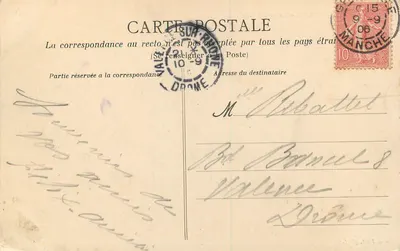 CARTE POSTALE
La correspondance au recto n'est pas acceptée par tous les pays étran
(Se renseigner à la Poste)
Partie réservée à la correspondance
Adresse du destinataire
VALENCE-SUR-RHONE
21
10-9
DROME
15
9-9
06
MANCHE
10
M Rebattet
Bd Bancel 8
Valence
Drôme
Souvenirs
de
vos amies